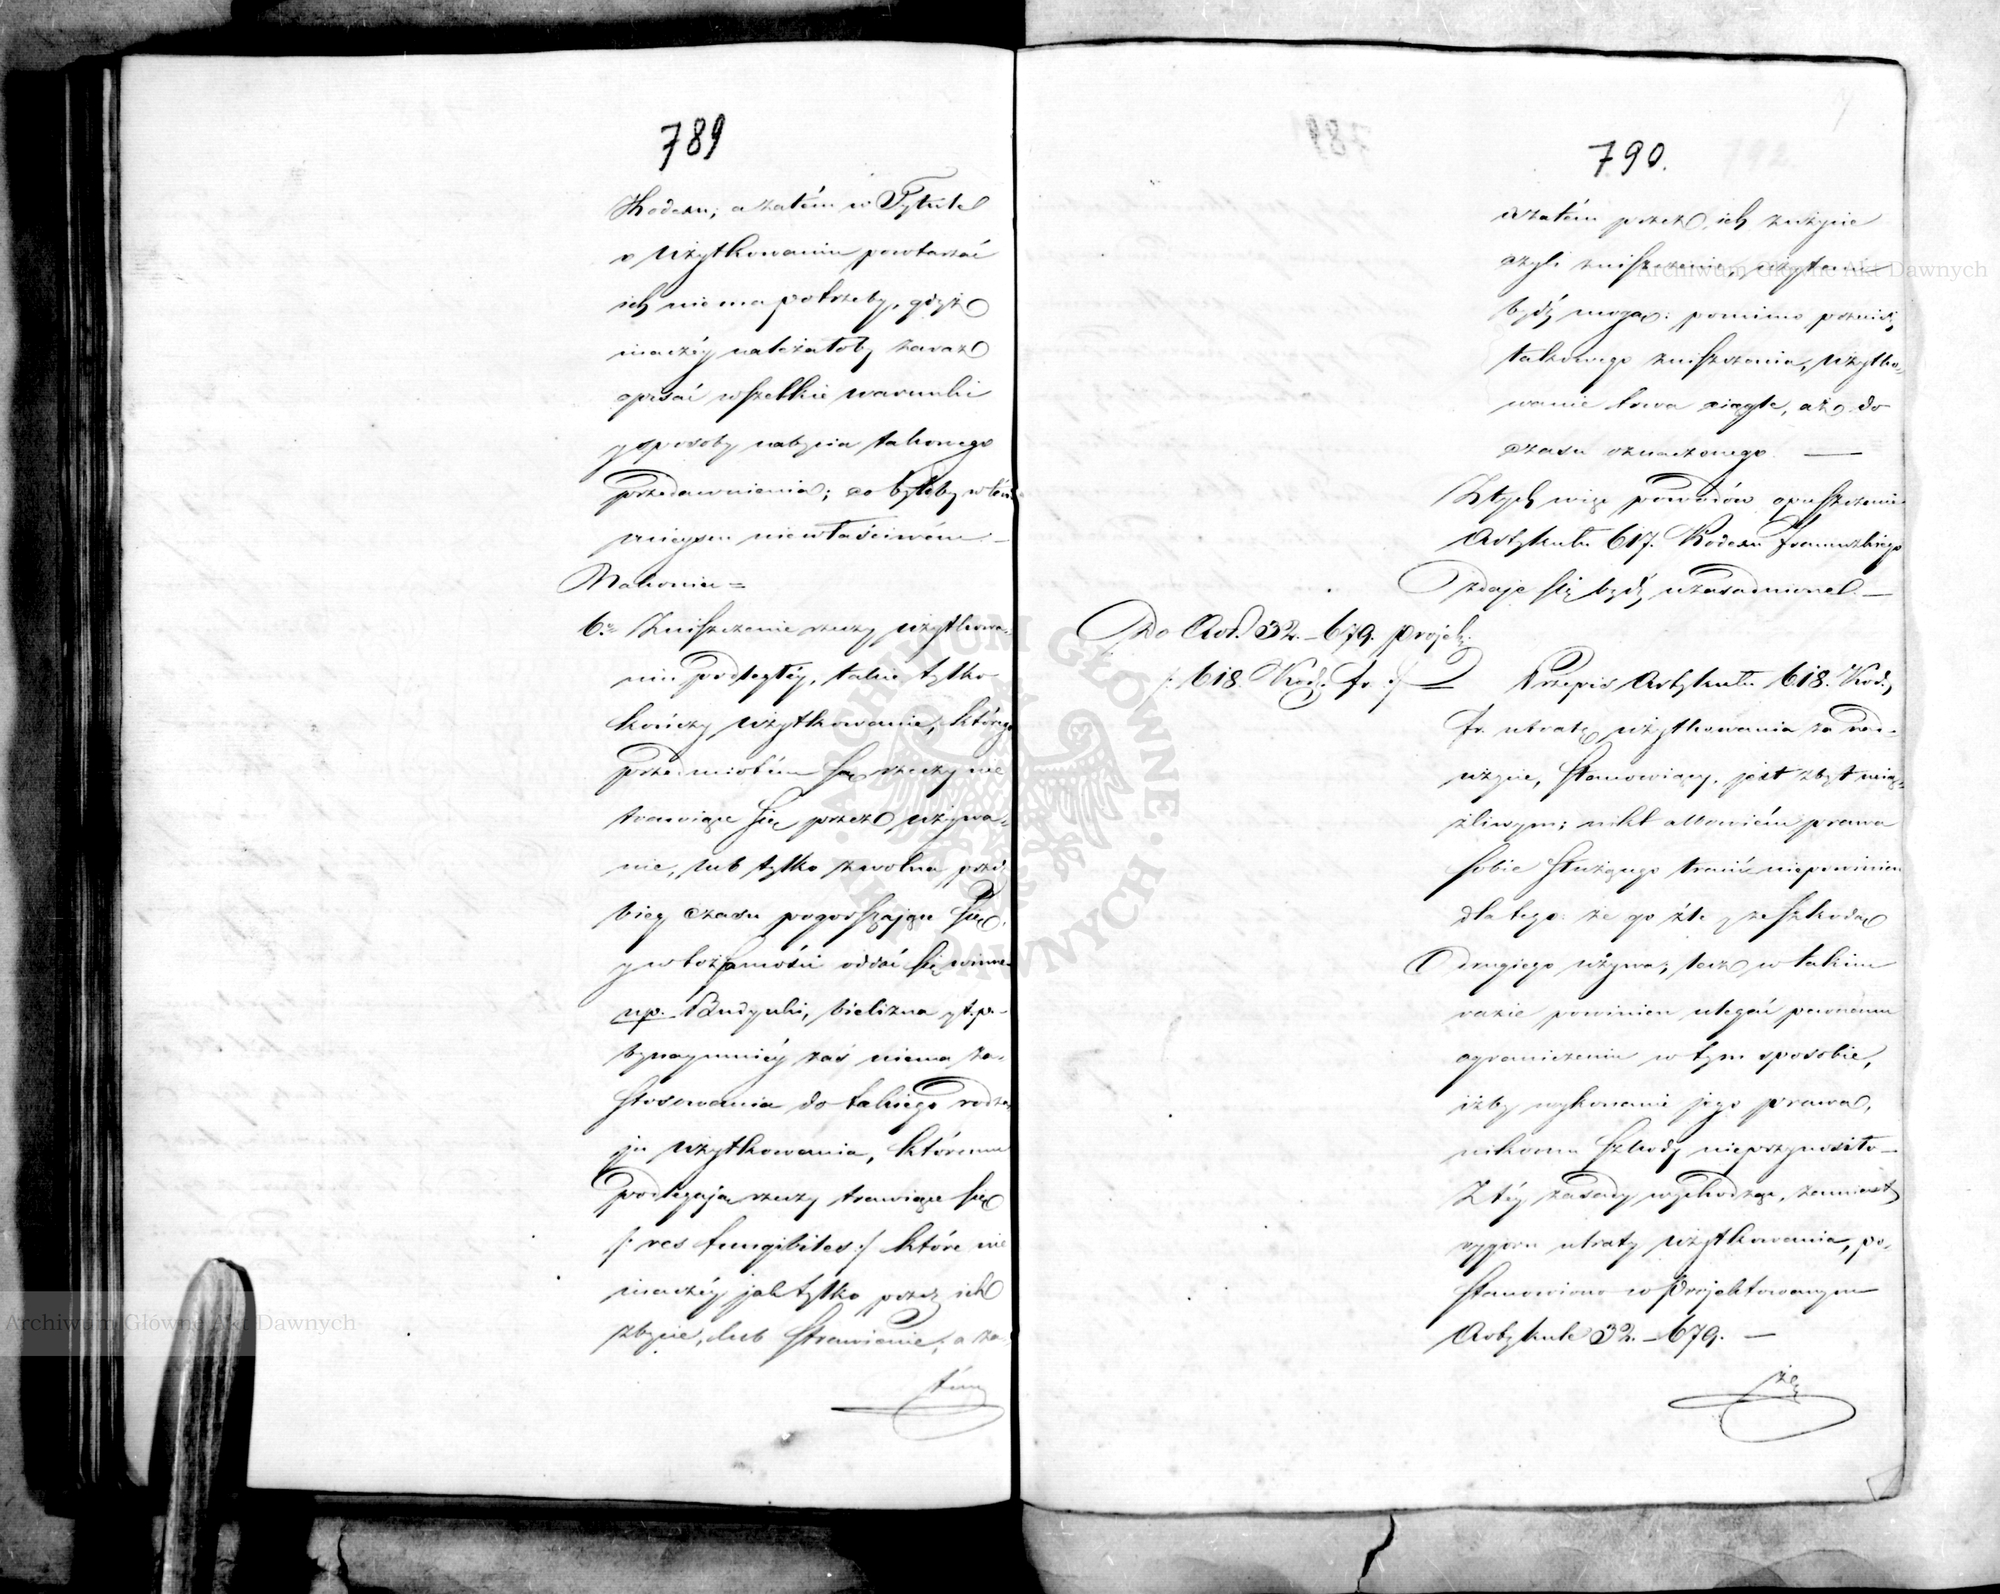 789
Kodexu; a zatém w Tytule
o użytkowaniu powtarzać
ich nie ma potrzeby, gdyż
inaczéy należałoby zaraz
opisać wszelkie warunki
y sposoby nabycia takowego
przedawnienia; co byłoby w tém
mieyscu niewłaściwém —
Nakoniec =
6.° Zniszczenie rzeczy użytkowa-
niu podległéy, takie tylko
kończy użytkowanie, którego
przedmiotém są rzeczy nie
trawiące się przez używa-
nie, lub tylko zwolna przez
bieg czasu pogorszające się,
y w tożsamości oddać się winne
np. Budynki, bielizna y t. p.
bynaymniéy zaś niema za-
stosowania do takiego rodza-
ju użytkowania, któremu
podlegają rzeczy trawiące się
/: res fungibiles :/ które nie
inaczéy jak tylko przez ich
zbycie, lub strawienie, a za-
tém
790.
a zatém przez ich zużycie
czyli zniszczenie, użytemi
bydź mogą: pomimo przeciеż
takowego zniszczenia, użytko-
wanie trwa ciągle, aż do
czasu oznaczonego. —
Z tych więc powodów opuszczenie
Artykułu 617. Kodexu francuzkiego
zdaje się bydź uzasadnione. —
Do Art. 32. – 679. Projek:
/: 618. Kod. fr. :/
Przepis Artykułu 618. Kod.
fr. utratę użytkowania za nad-
użycie, stanowiący, jest zbyt uciąż-
żliwym; nikt albowiém prawa
sobie służącego tracić niepowinien
dla tego: że go źle y ze szkodą
drugiego używa; lecz w takim
razie powinien ulegać pewnemu
ograniczeniu w tym sposobie,
iżby wykonanie jego prawa,
nikomu szkody nieprzynosiło —
Z téy zasady wychodząc, zamiast
rygoru utraty użytkowania, po-
stanowiono w Projektowanym
Artykule 32. – 679. —
że
Archiwum Główne Akt Dawnych
Archiwum Główne Akt Dawnych
ARCHIWUM GŁÓWNE AKT DAWNYCH